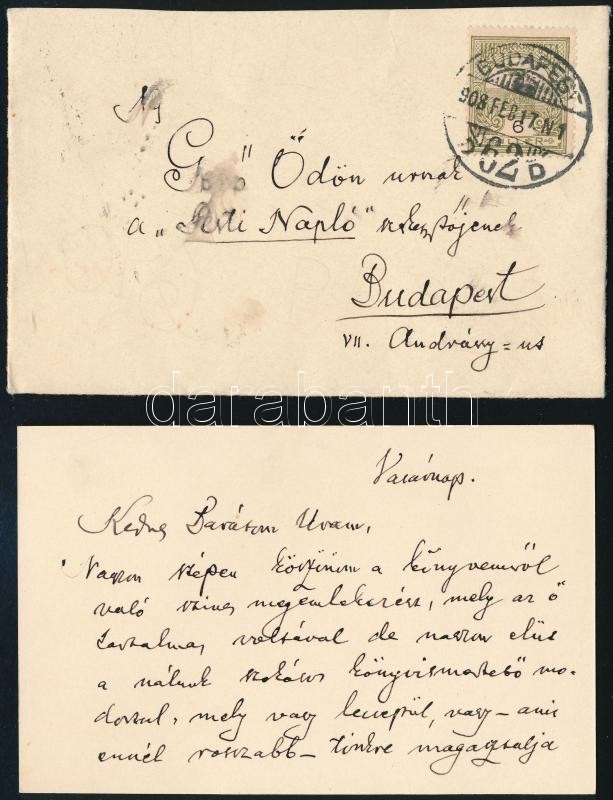 MAGYAR KIR. POSTA
BUDAPEST
908 FEB 17 N1
6
62 D
Ng
Gerő Ödön urnak
a „Pesti Napló" szerkesztőjének
Budapest
VII. Andrássy=ut
darabanth
Vasárnap.
Kedves Barátom Uram,
Nagyon szépen köszönöm a könyvemről
való szives megemlékezést, mely az ő
tartalmas voltával de nagyon elüt
a nálunk szokásos könyvismertető mo-
dortul, mely vagy lecsepül, vagy – ami
ennél rosszabb – tinkre magasztalja